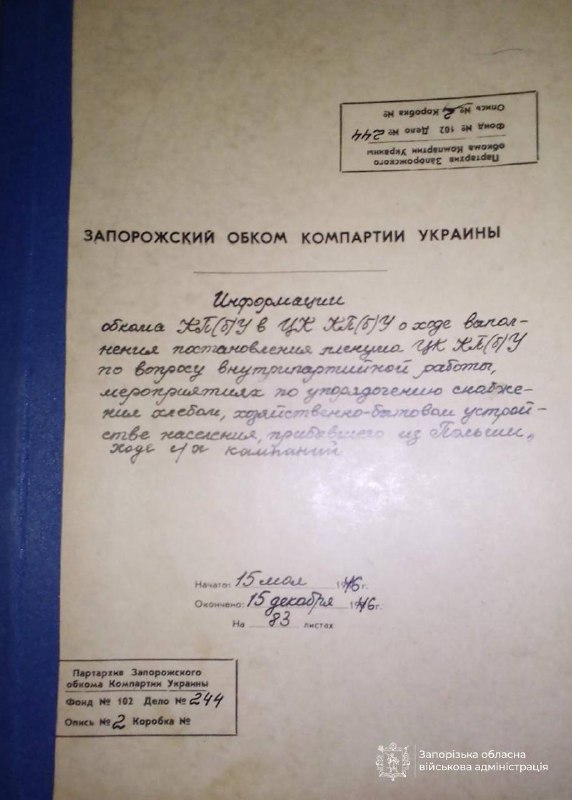 Партархив Запорожского
обкома Компартии Украины
Фонд № 102 Дело № 244
Опись № 2 Коробка №
ЗАПОРОЖСКИЙ ОБКОМ КОМПАРТИИ УКРАИНЫ
Информации
обкома КП(б)У в ЦК КП(б)У о ходе выпол-
нения постановления пленума ЦК КП(б)У
по вопросу внутрипартийной работы,
мероприятиях по упорядочению снабже-
ния хлебом, хозяйственно-бытовом устрой-
стве населения, прибывшего из Польши,
ходе с/х кампаний
Начато: 15 мая 1946 г.
Окончено: 15 декабря 1946 г.
На 83 листах
Партархив Запорожского
обкома Компартии Украины
Фонд № 102 Дело № 244
Опись № 2 Коробка №
Запорізька обласна
військова адміністрація